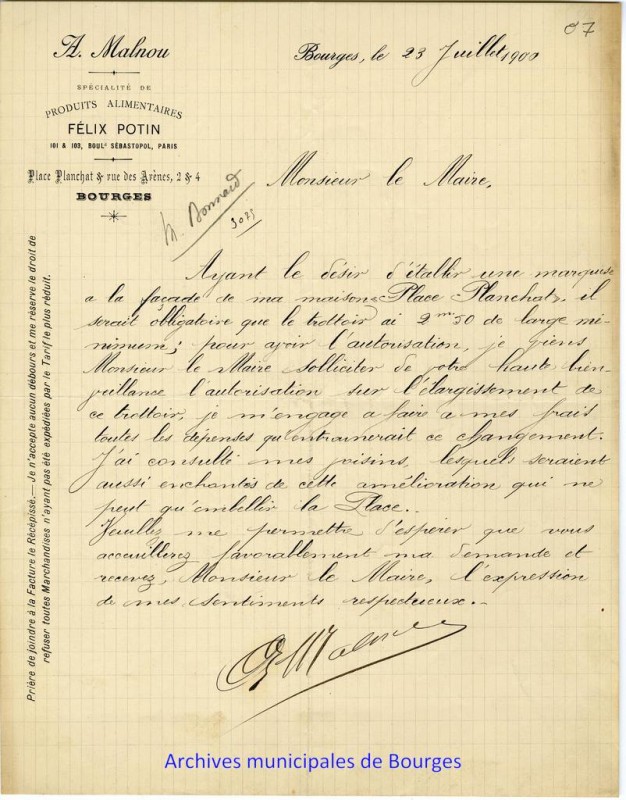 07
A. Malnou
SPÉCIALITÉ DE
PRODUITS ALIMENTAIRES
FÉLIX POTIN
101 & 103, BOULD SÉBASTOPOL, PARIS
Place Planchat & rue des Arènes, 2 & 4
BOURGES
Bourges, le 23 Juillet 1900
Monsieur le Maire,
M. Bonnard
3075
Ayant le désir d'établir une marquise
a la façade de ma maison "Place Planchat", il
serait obligatoire que le trottoir ai 2m50 de large mi-
nimum; pour avoir l'autorisation, je viens
Monsieur le Maire solliciter de votre haute bien-
veillance l'autorisation sur l'élargissement de
ce trottoir, je m'engage a faire a mes frais
toutes les dépenses qu'entrainerait ce changement.
J'ai consulté mes voisins, lesquels seraient
aussi enchantés de cette amélioration qui ne
peut qu'embellir la Place..
Veuillez me permettre d'espérer que vous
accueillerez favorablement ma demande et
recevez, Monsieur le Maire, l'expression
de mes sentiments respectueux.-
A Malnou
Prière de joindre à la Facture le Récépissé.— Je n'accepte aucun débours et me réserve le droit de
refuser toutes Marchandises n'ayant pas été expédiées par le Tarif le plus réduit.
Archives municipales de Bourges